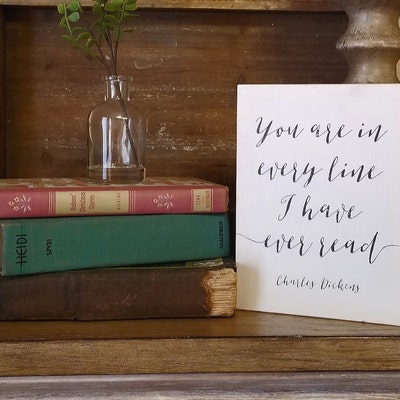 You are in
every line
I have
ever read
Charles Dickens
HEIDI
SPYRI